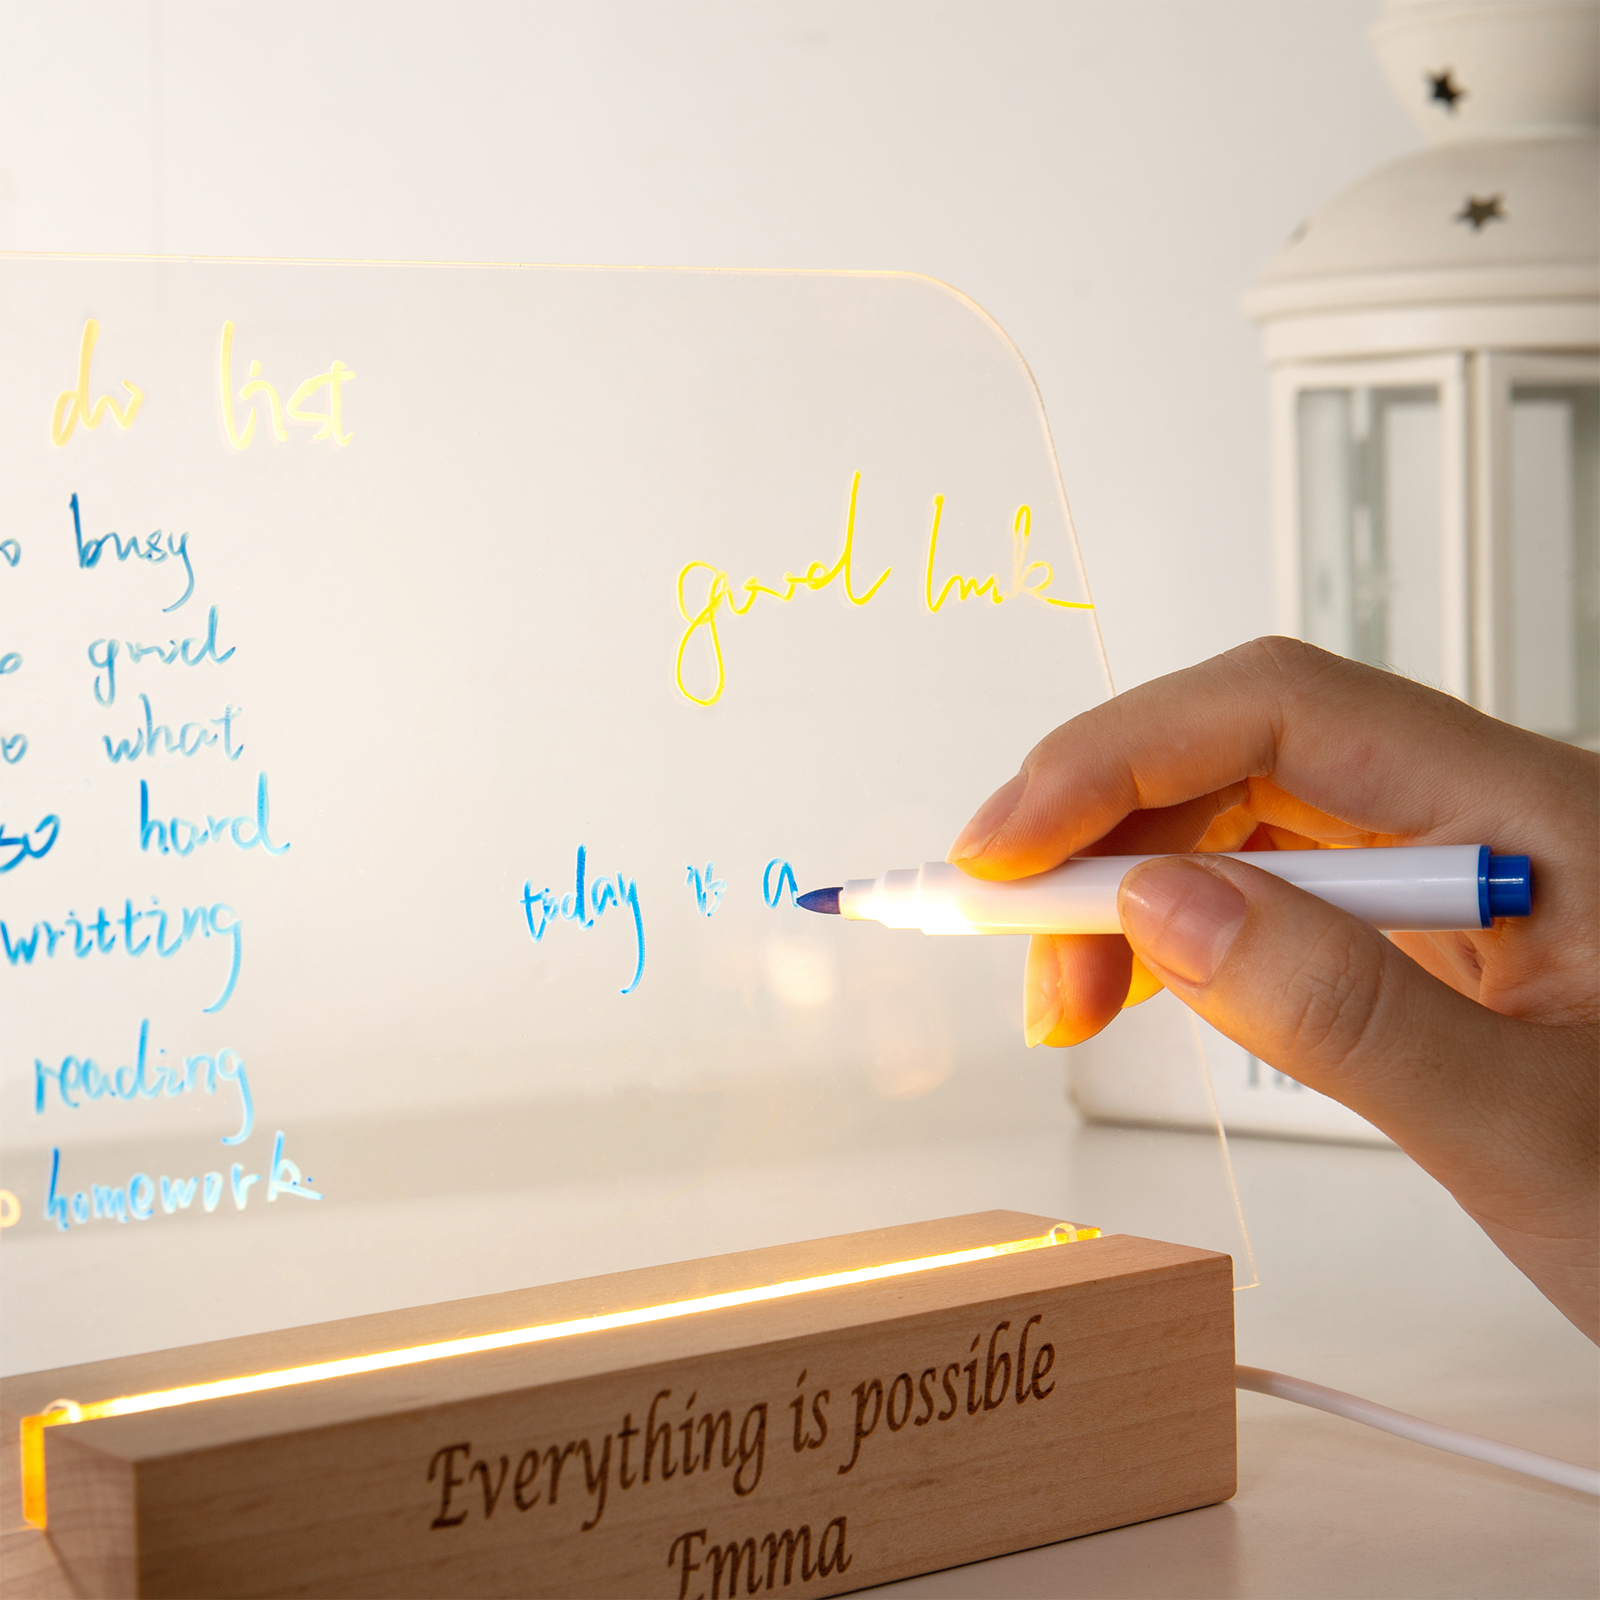 do list
busy
good
what
so hard
writting
reading
homework.
good luck
today is a
Everything is possible
Emma